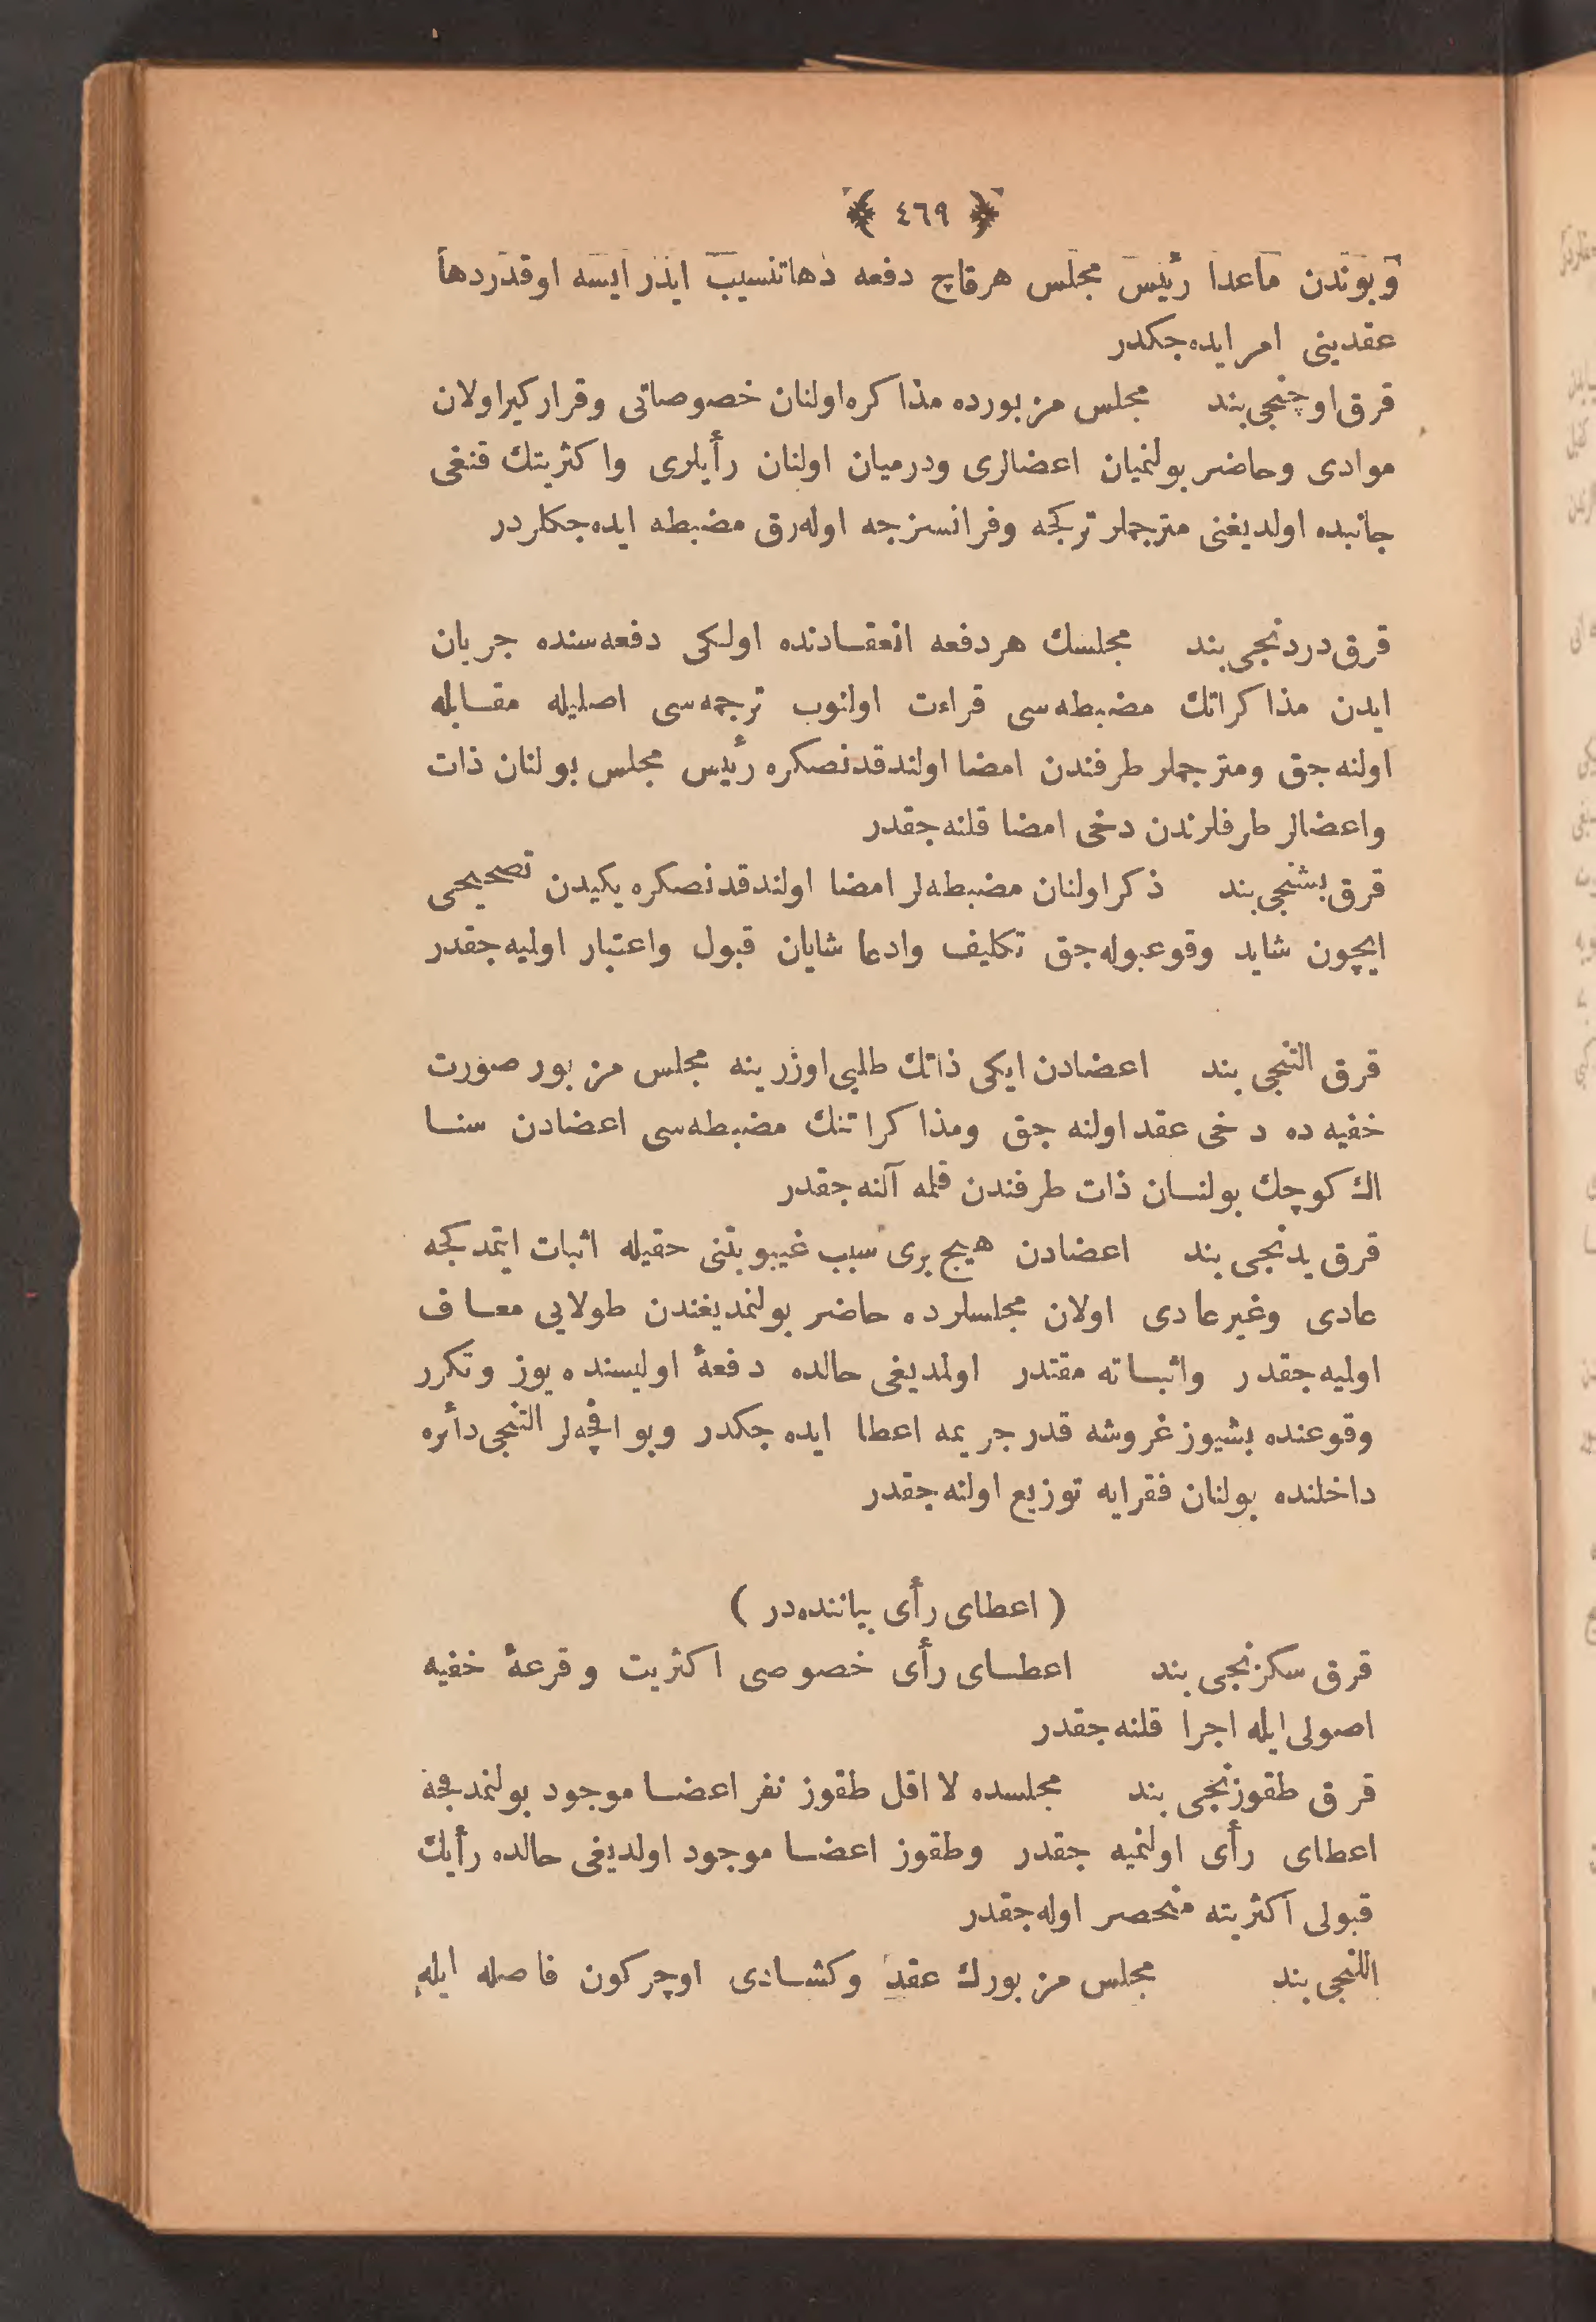 ٤٦٩
وبوندن ماعدا رئیس مجلس هرقاچ دفعه دهاتنسیب ایدر ایسه اوقدردها
عقدینی امر ایده‌جکدر
قرق اوچنجی بند مجلس مزبورده مذاکره اولنان خصوصاتی وقرارکیراولان
موادی وحاضر بولنمیان اعضالری ودرمیان اولنان رأیلری واکثریتك قنغی
جانبده اولدیغنی مترجملر ترکجه وفرانسزجه اوله‌رق مضبطه ایده‌جکلردر
قرق دردنجی بند مجلسك هردفعه انعقادنده اولکی دفعه‌سنده جریان
ایدن مذاکراتك مضبطه‌سی قراءت اولنوب ترجمه‌سی اصلیله مقابله
اولنه‌جق ومترجملر طرفندن امضا اولندقدنصکره رئیس مجلس بولنان ذات
واعضالر طرفلرندن دخی امضا قلنه‌جقدر
قرق بشنجی بند ذکراولنان مضبطه‌لر امضا اولندقدنصکره یکیدن تصحیحی
ایچون شاید وقوعبوله‌جق تکلیف وادعا شایان قبول واعتبار اولمیه‌جقدر
قرق التنجی بند اعضادن ایکی ذاتك طلبی اوزرینه مجلس مزبور صورت
خفیه‌ده دخی عقد اولنه‌جق ومذاکراتنك مضبطه‌سی اعضادن سنا
اك کوچك بولنان ذات طرفندن قلمه آلنه‌جقدر
قرق یدنجی بند اعضادن هیچ بری سبب غیبوبتنی حقیله اثبات ایتمدکجه
عادی وغیرعادی اولان مجلسلرده حاضر بولنمدیغندن طولایی معاف
اولمیه‌جقدر واثباته مقتدر اولمدیغی حالده دفعهٔ اولیسنده یوز وتکرر
وقوعنده بشیوز غروشه قدر جریمه اعطا ایده‌جکدر وبو اقچه‌لر التنجی دائره
داخلنده بولنان فقرایه توزیع اولنه‌جقدر
( اعطای رأی بیاننده‌در )
قرق سکزنجی بند اعطای رأی خصوصی اکثریت وقرعهٔ خفیه
اصولی ایله اجرا قلنه‌جقدر
قرق طقوزنجی بند مجلسده لا اقل طقوز نفر اعضا موجود بولنمدقجه
اعطای رأی اولنمیه‌جقدر وطقوز اعضا موجود اولدیغی حالده رأیك
قبولی اکثریته منحصر اوله‌جقدر
اللنجی بند مجلس مزبورك عقد وکشادی اوچر کون فاصله ایله